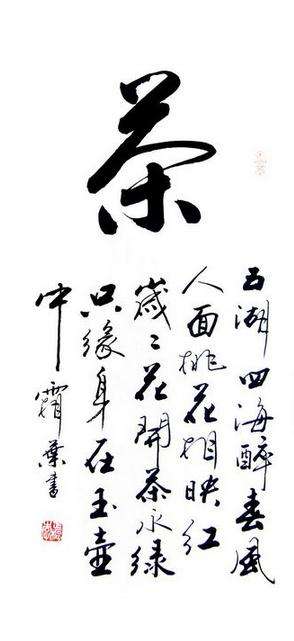 茶
五湖四海醉春風
人面桃花相映红
歲歲花開茶永緑
只緣身在玉壺
中 霜葉書